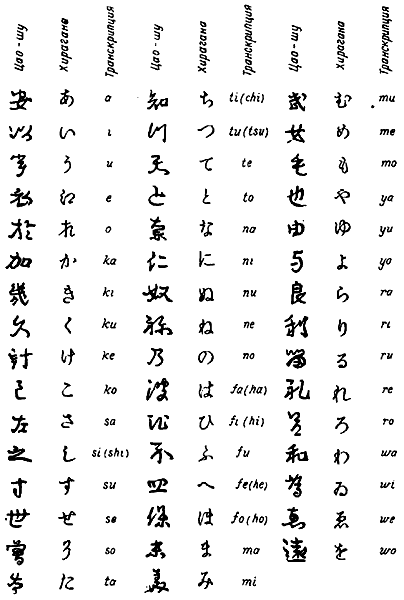 Цао-шу Хирагана Транскрипция Цао-шу Хирагана Транскрипция Цао-шу Хирагана Транскрипция
安 あ a 知 ち ti(chi) 武 む mu
以 い i 川 つ tu(tsu) 女 め me
宇 う u 天 て te 毛 も mo
衣 え e 止 と to 也 や ya
於 お o 奈 な na 由 ゆ yu
加 か ka 仁 に ni 与 よ yo
幾 き ki 奴 ぬ nu 良 ら ra
久 く ku 祢 ね ne 利 り ri
計 け ke 乃 の no 留 る ru
己 こ ko 波 は fa(ha) 礼 れ re
左 さ sa 比 ひ fi(hi) 呂 ろ ro
之 し si(shi) 不 ふ fu 和 わ wa
寸 す su へ fe(he) 為 ゐ wi
世 せ se 保 ほ fo(ho) 恵 ゑ we
曽 そ so 末 ま ma 遠 を wo
た ta 美 み mi